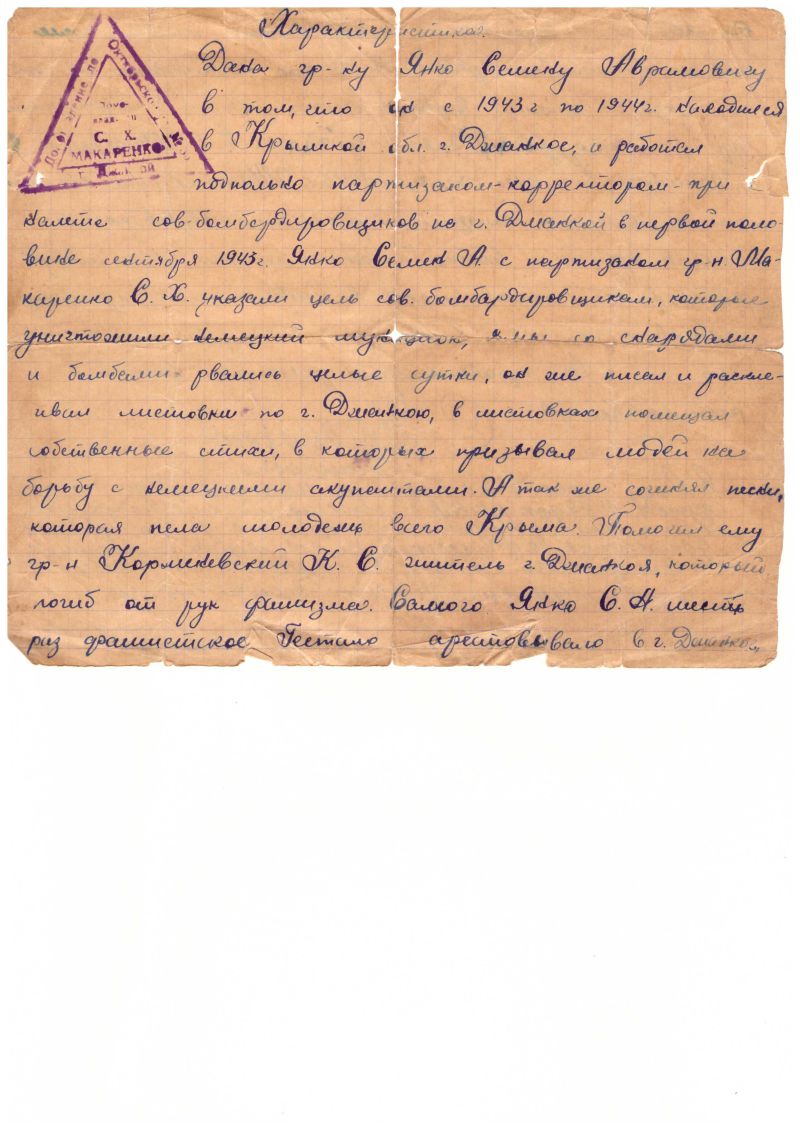 Характеристика.
Дана гр-ну Янко Семену Аврамовичу
в том, что он с 1943 г по 1944 г. находился
в Крымской обл. г. Джанкое, и работал
подпольно партизаном-корректором-при
налете сов-бомбардировщиков на г. Джанкой в первой поло-
вине сентября 1943 г. Янко Семен А. с партизаном гр-н Ма-
каренко С. Х. указали цель сов. бомбардировщикам, которые
уничтожили немецкий со снарядами
и бомбами рвались целые сутки, он же писал и раскле-
ивал листовки по г. Джанкою, в листовках помещал
собственные стихи, в которых призывал людей на
борьбу с немецкими окупантами. А так же сочинял песни,
которая пела молодежь всего Крыма. Помогал ему
гр-н К. С. житель г. Джанкоя, который
погиб от рук фашизма. Самого Янко С. А. шесть
раз фашистское Гестапо арестовывало в г. Джанкое
Домовладение по Октябрьской
Домо-
С. Х.
МАКАРЕНКО
г. Джанкой